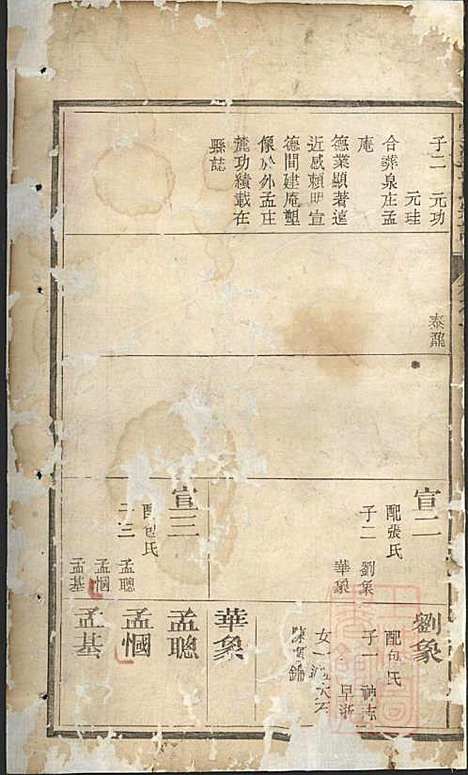 子二 元功
元珪
合葬泉庄孟
庵
德業顯著遠
近感賴明宣
德間建庵塑
像於外孟庄
麓功績載在
縣誌
泰鼐
宣二
配張氏
子二 劉象
華象
宣三
配包氏
子三 孟聰
孟悃
孟基
劉象
配包氏
子一
早逝
女一
華象
孟聰
孟悃
孟基